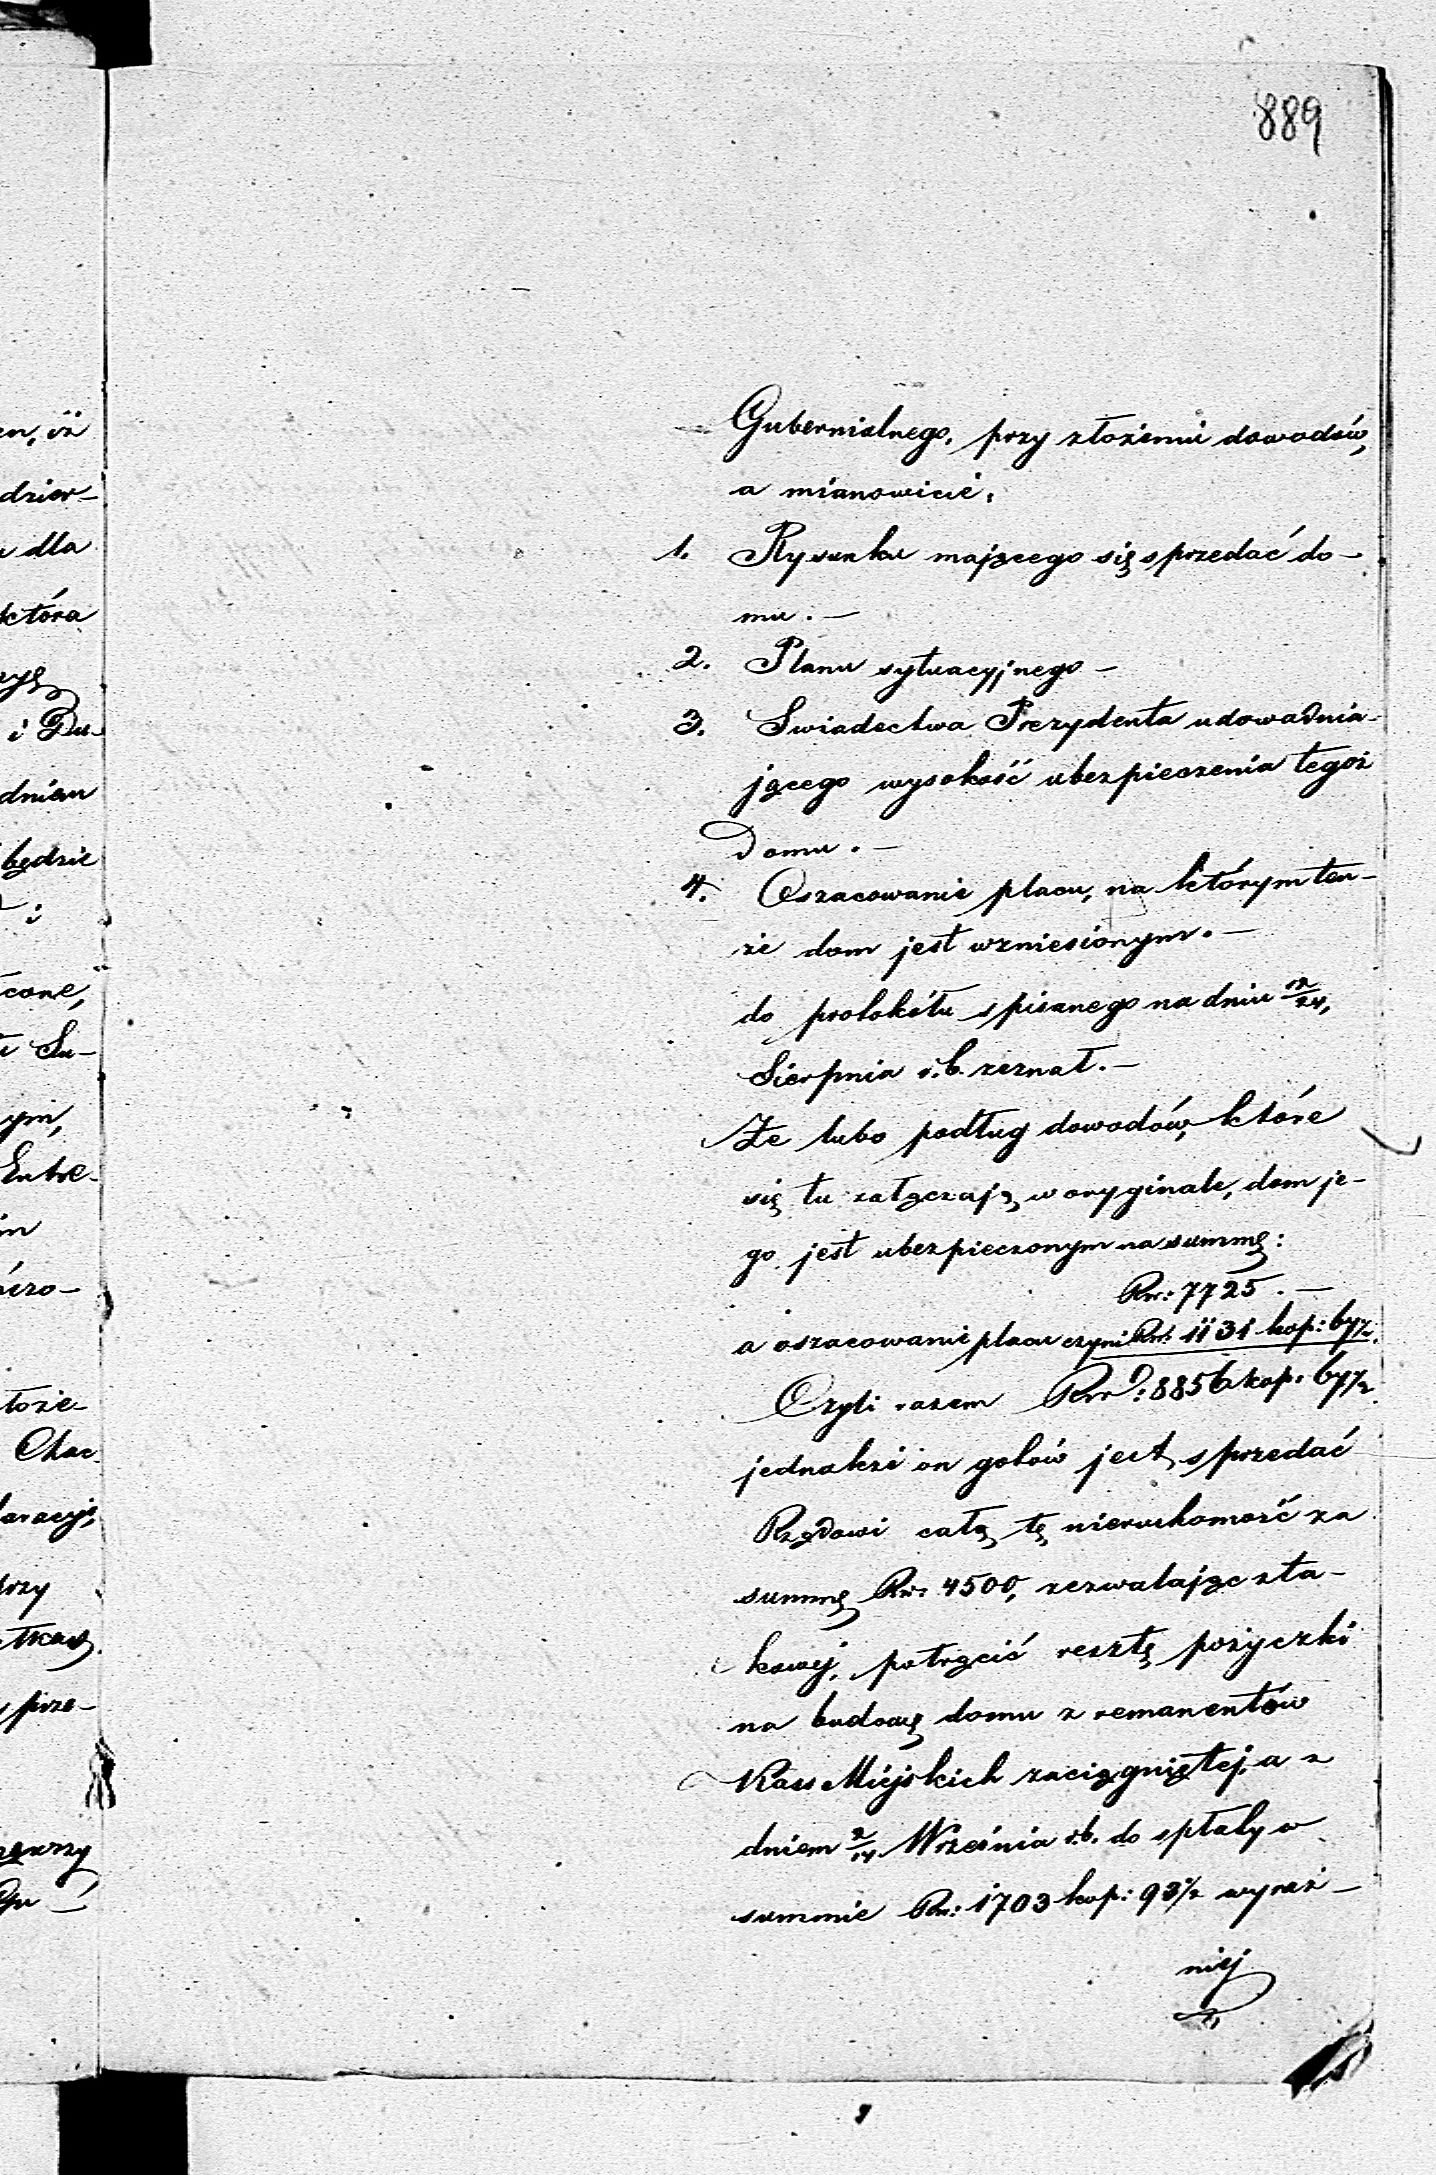 889
Gubernialnego, przy złożeniu dowodów,
a mianowicie,
1. Rysunku mającego się sprzedać do-
mu. —
2. Planu sytuacyjnego —
3. Swiadectwa Prezydenta udowadnia-
jącego wysokość ubezpieczenia tegoż
Domu. —
4. Oszacowanie placu, na którym ten-
że dom jest wzniesionym. —
do protokółu spisanego na dniu 12/24,
Sierpnia r.b. zeznał. —
Że lubo podług dowodów, które
się tu załączają w oryginale, dom je-
go jest ubezpieczonym na summę:
Rsr: 7725. —
a oszacowanie placu czyni Rsr: 1131 kop: 67½.
Czyli razem Rsr: 8856 kop: 67½.
jednakże on gotów jest sprzedać
Rządowi całą tę nieruchomość za
summę Rsr: 4500, zezwalając zta-
kowej, potrącić resztę pożyczki
na budowę domu z remanentów
Kass Miejskich zaciągniętej, a z
dniem 2/14 Września r.b. do spłaty w
summie Rsr: 1703 kop: 93½ wyraź-
niej
en, iż
dzier-
dla
która
i Du-
dniem
będzie
i
cone,
Su-
ym,
łoże-
Chac-
laracyi,
przy
prze-